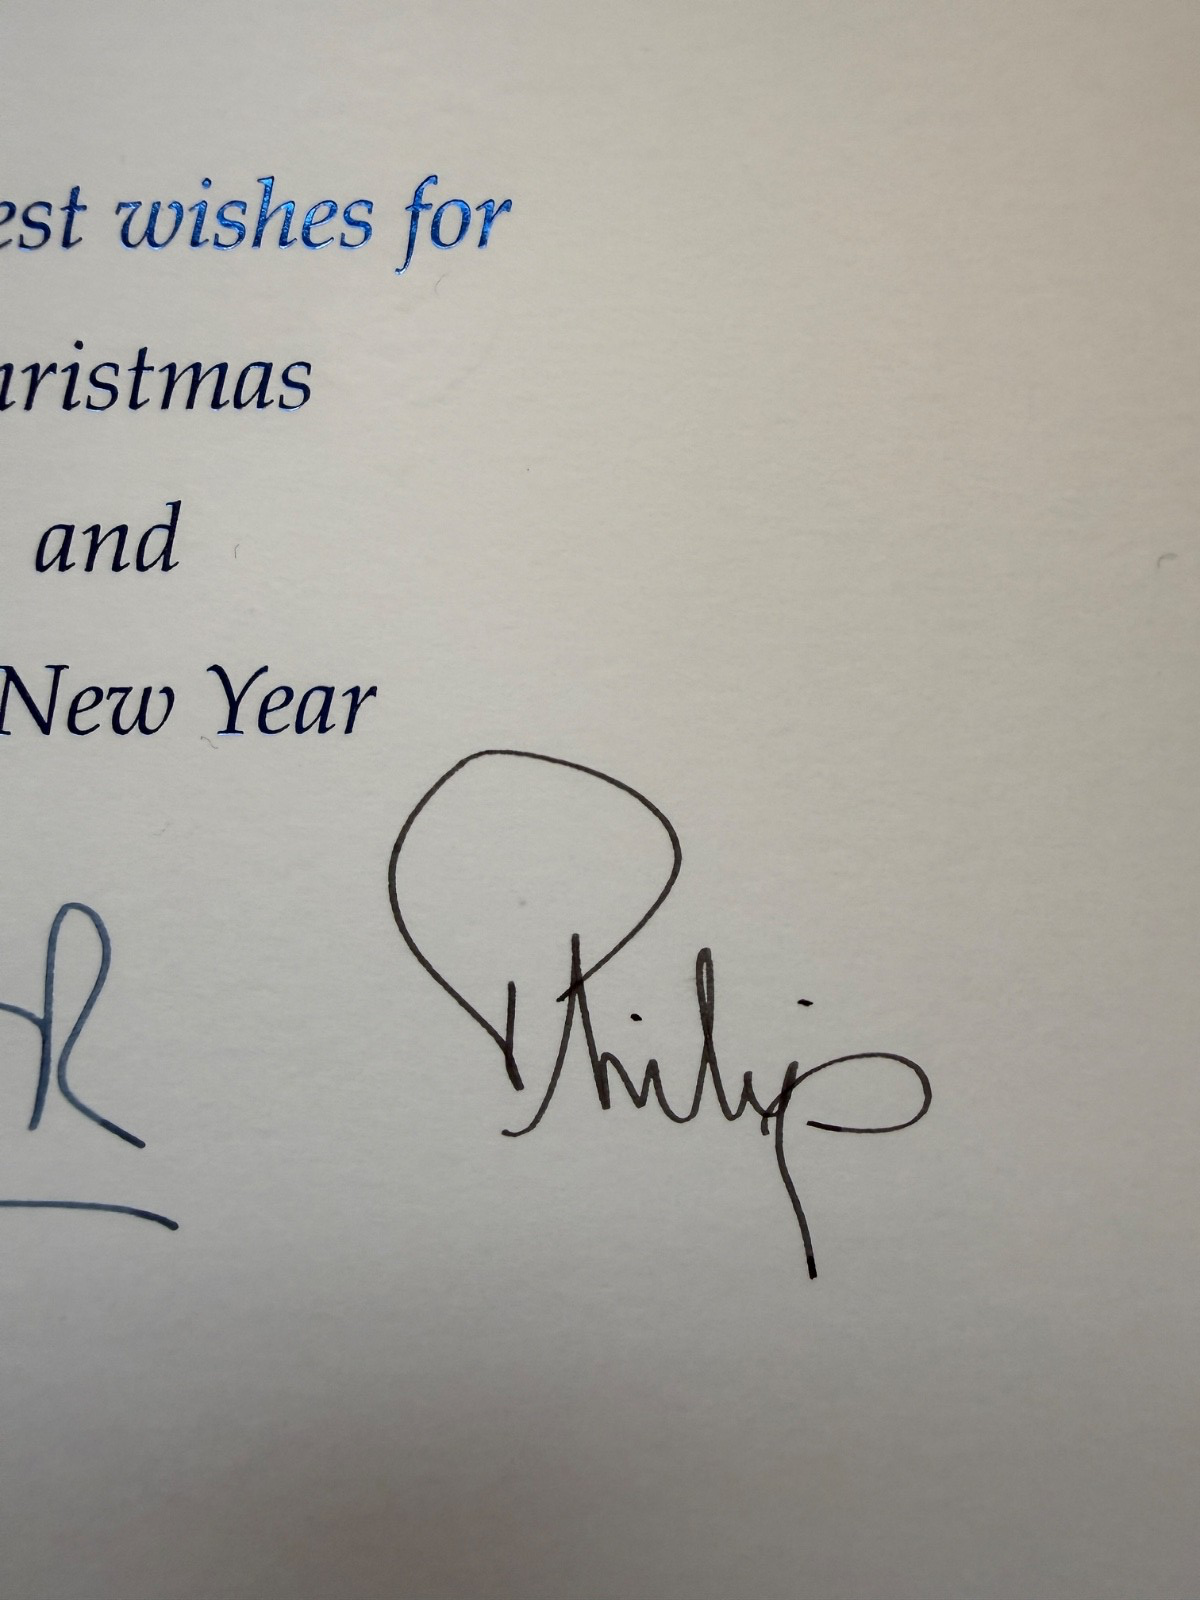 est wishes for
hristmas
and
New Year
R Philip